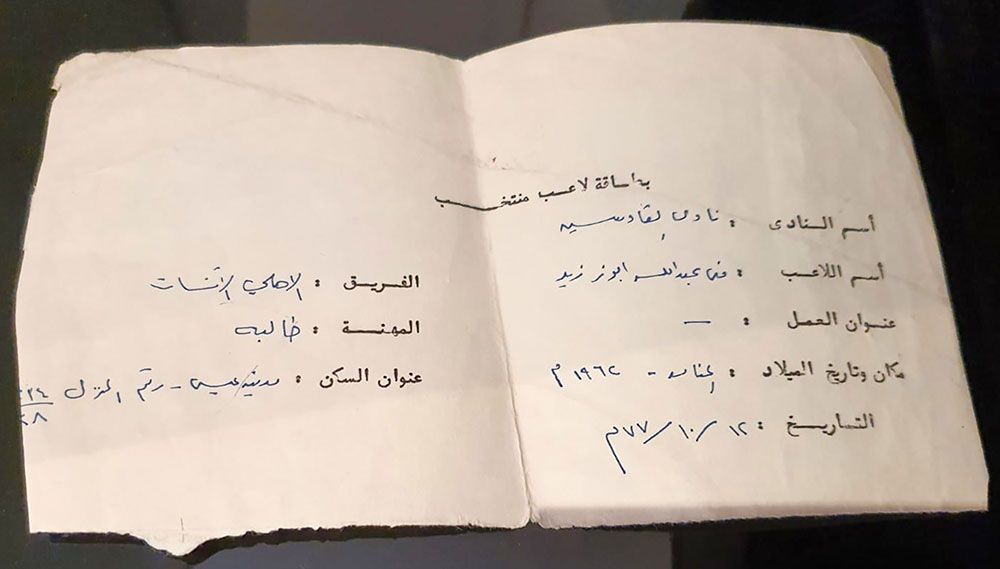 بطاقة لاعب منتخب
أسم النادى : نادى القادسيه
أسم اللاعب : منى عبدالله ابوزيد
عنوان العمل : —
مكان وتاريخ الميلاد : - ١٩٦٢ م
التاريخ : ١٢/ ١٠/ ٧٧ م
الفريق : الاهلي الآنسات
المهنة : طالبه
عنوان السكن : مدينة عيسى - رقم المنزل